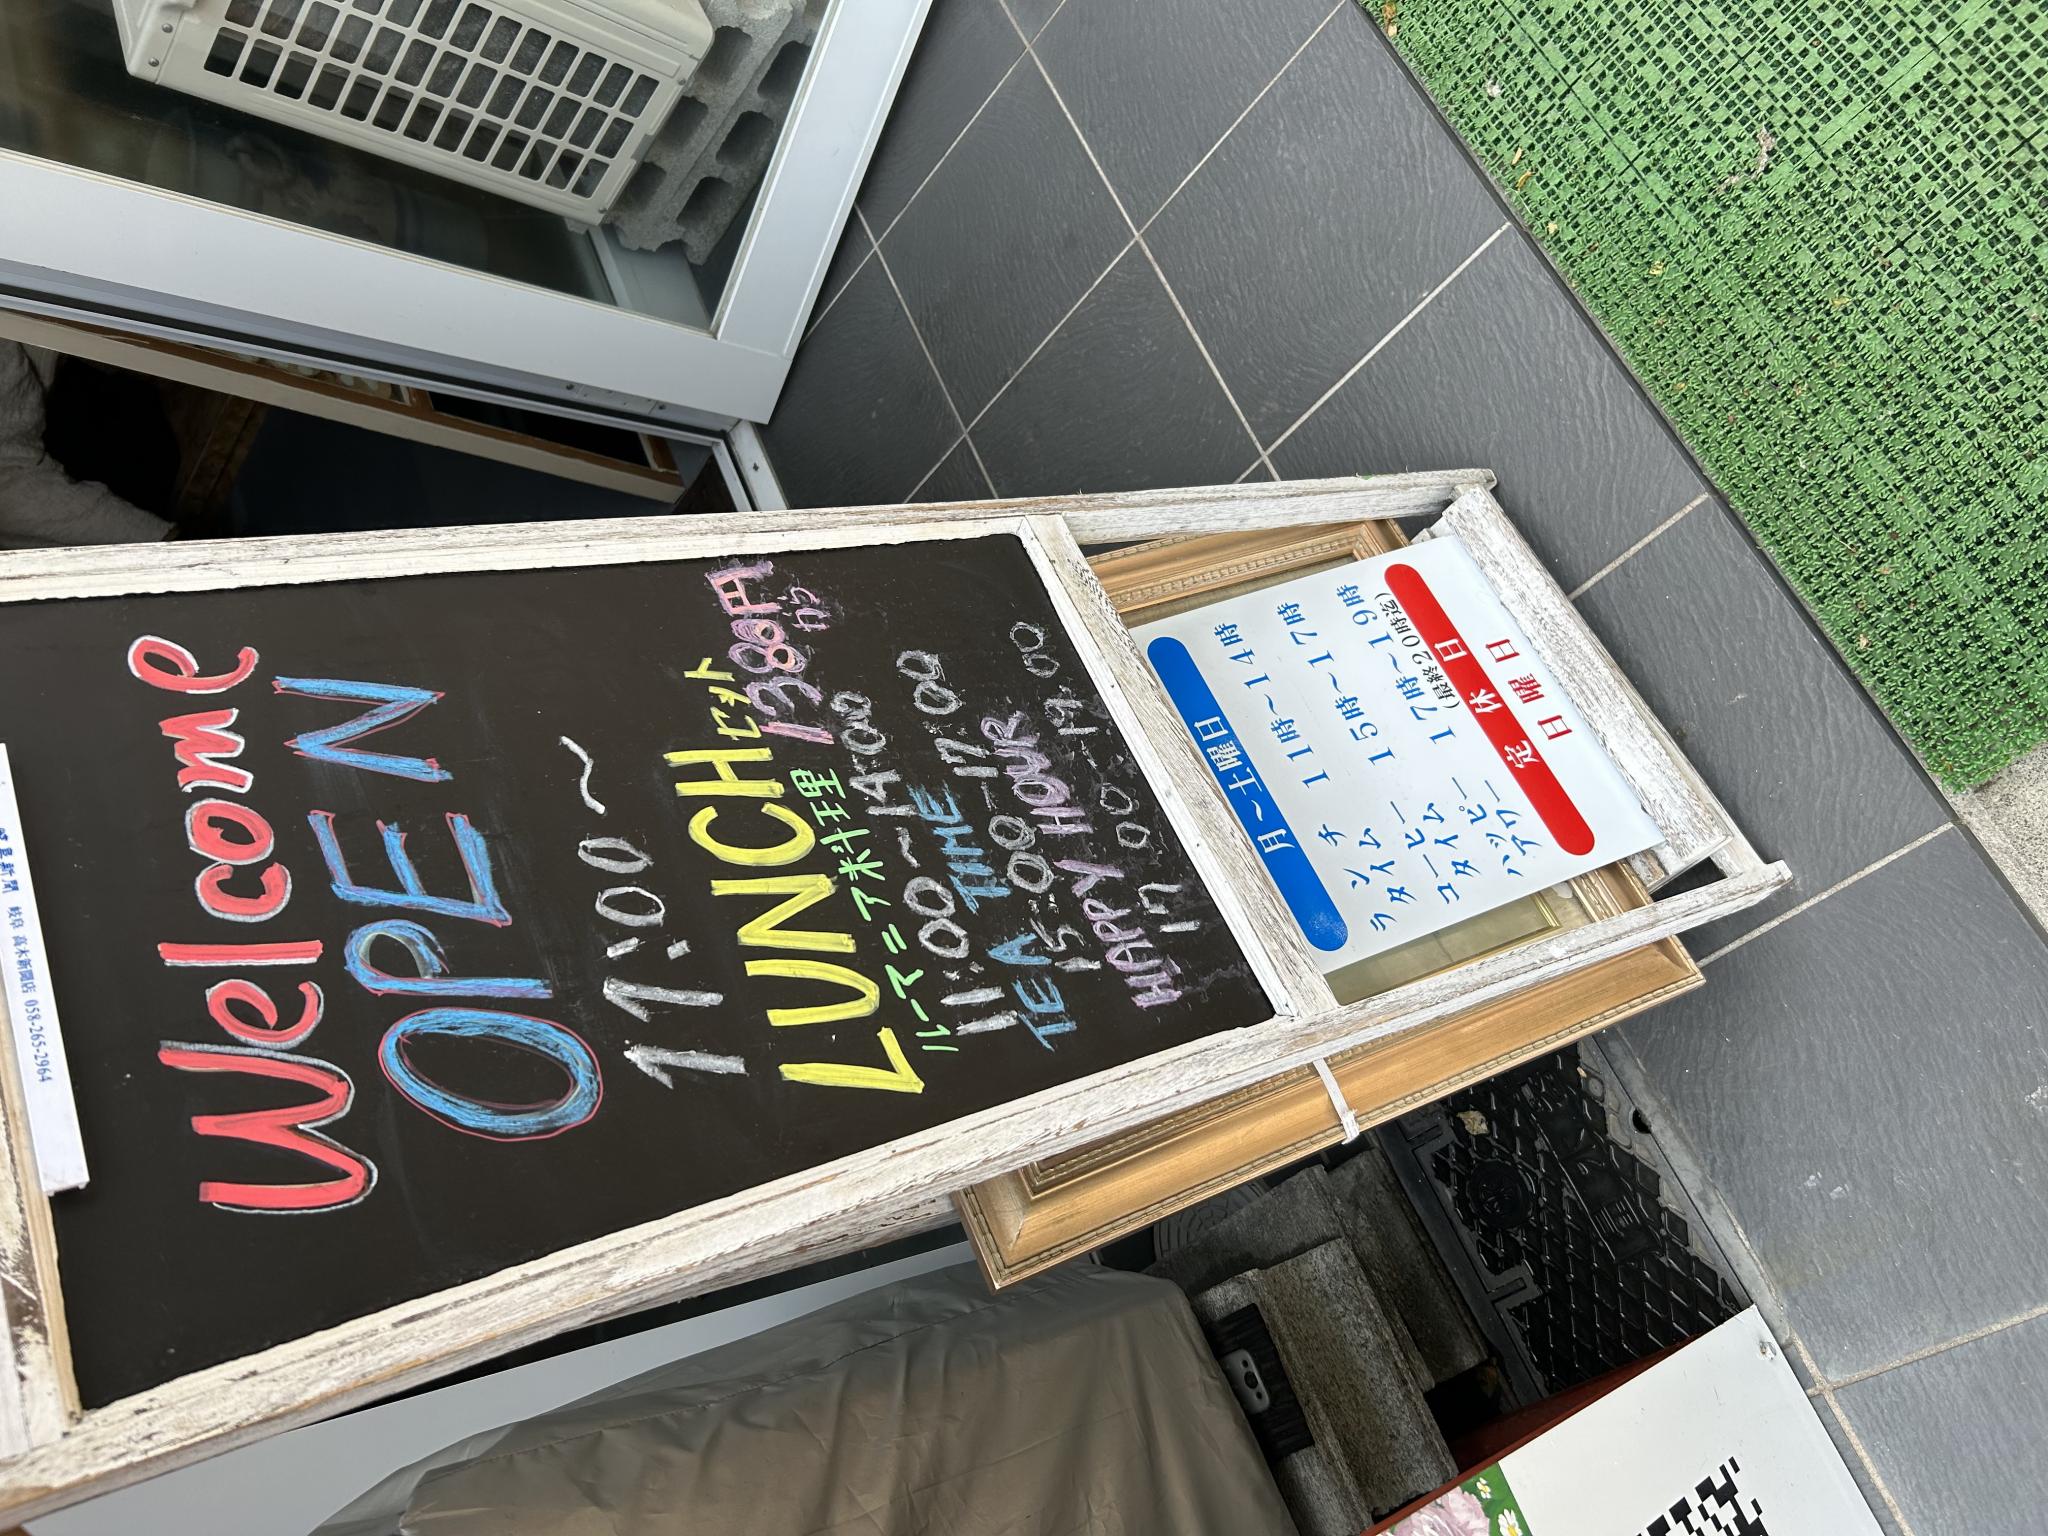 岐阜新聞 岐阜 高木新聞店 058-265-2964
Welcome
OPEN
11:00～
LUNCHセット
ルーマニア料理 1380円から
11:00～14:00
TEA TIME
15:00-17:00
HAPPY HOUR
17:00-19:00
月～土曜日
ランチタイム 11時～14時
コーヒータイム 15時～17時
ハッピーアワー 17時～19時
(最終20時迄)
定休日
日曜日